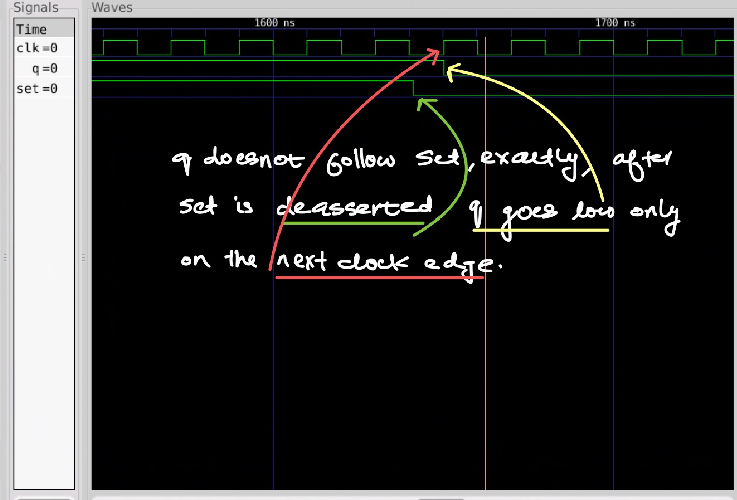 Signals Waves
Time
1600 ns 1700 ns
clk=0
q=0
set=0
q doesnot follow set, exactly, after
set is deasserted q goes low only
on the next clock edge.